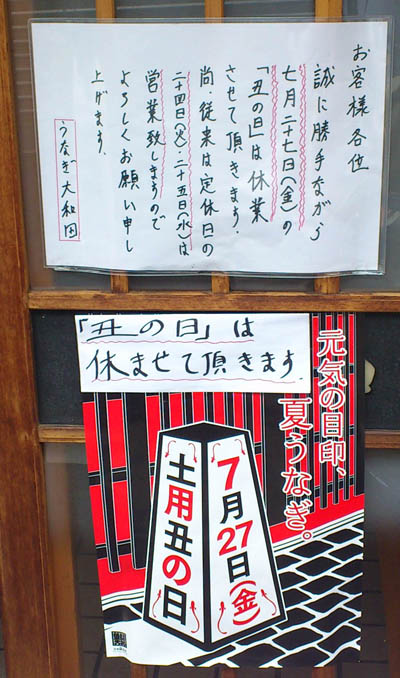 お客様各位
誠に勝手ながら
七月二十七日(金)の
「丑の日」は休業
させて頂きます.
尚、従来は定休日の
二十四日(火)、二十五日(水)は
営業致しますので
よろしくお願い申し
上げます.
うなぎ大和田
「丑の日」は
休ませて頂きます.
元気の目印、
夏うなぎ。
7月27日(金)
土用丑の日